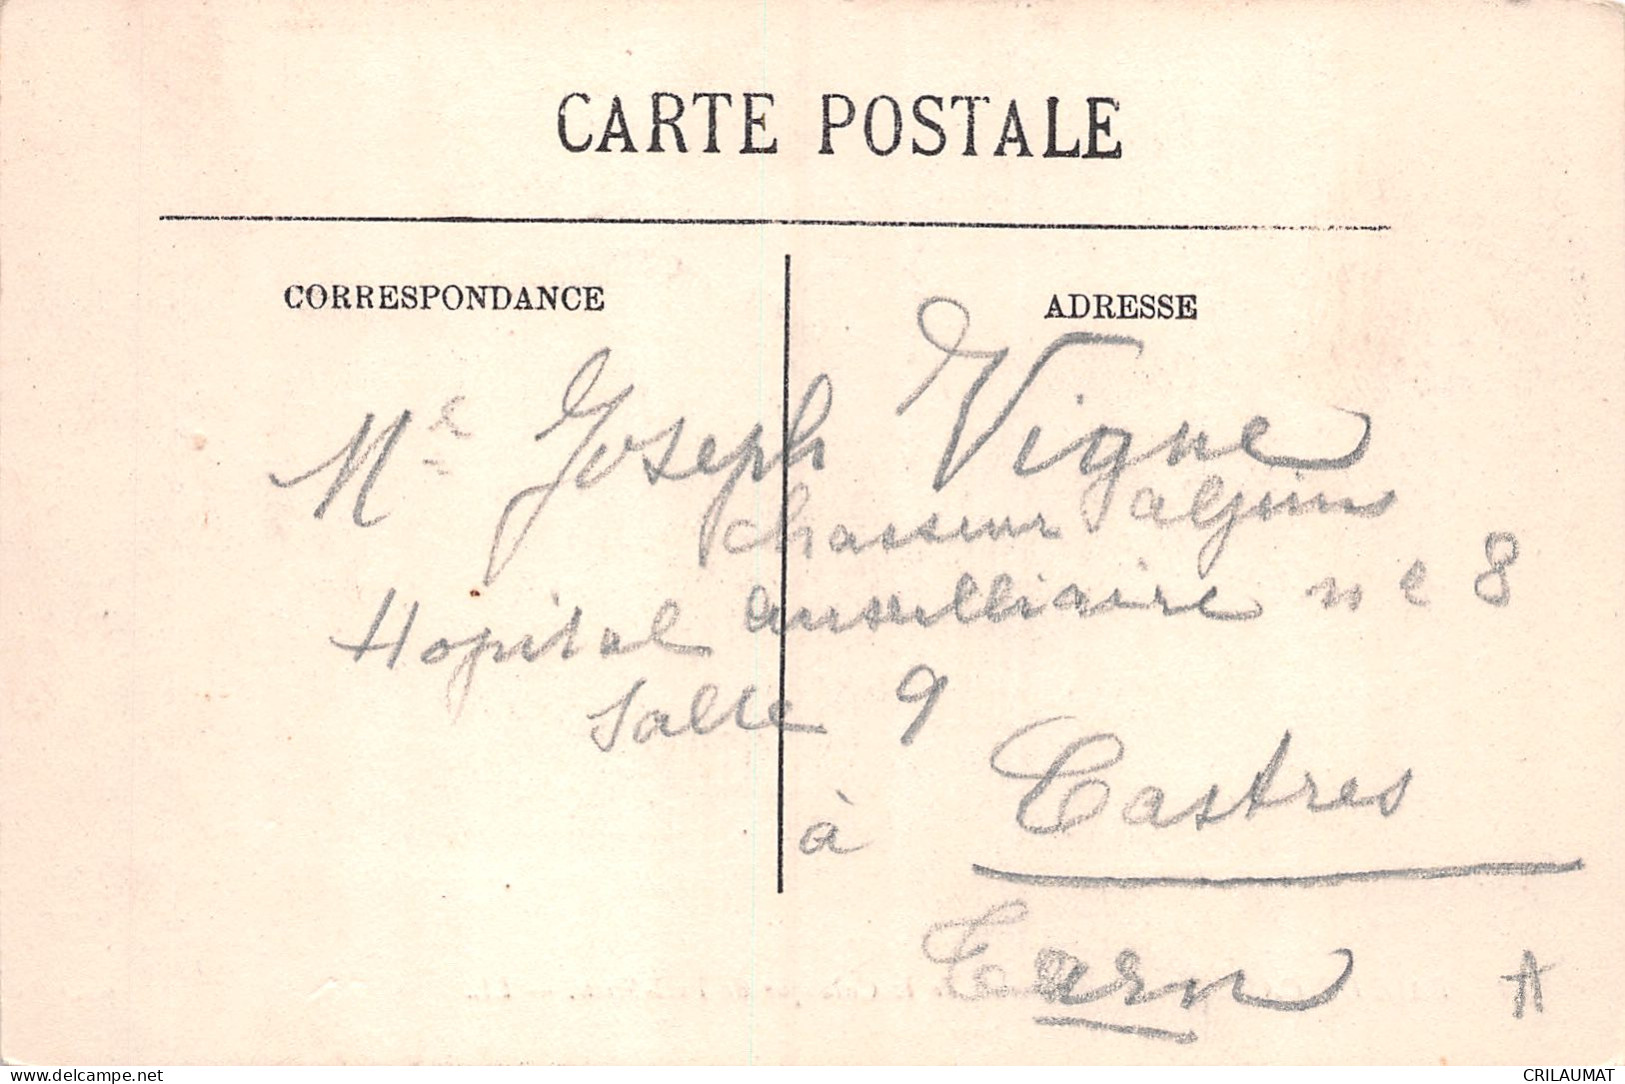 CARTE POSTALE
CORRESPONDANCE
ADRESSE
Mr Joseph Vigne
chasseur alpins
Hopital auxilliaire ne 8
Salle 9
à Castres
Tarn
A
CRILAUMAT